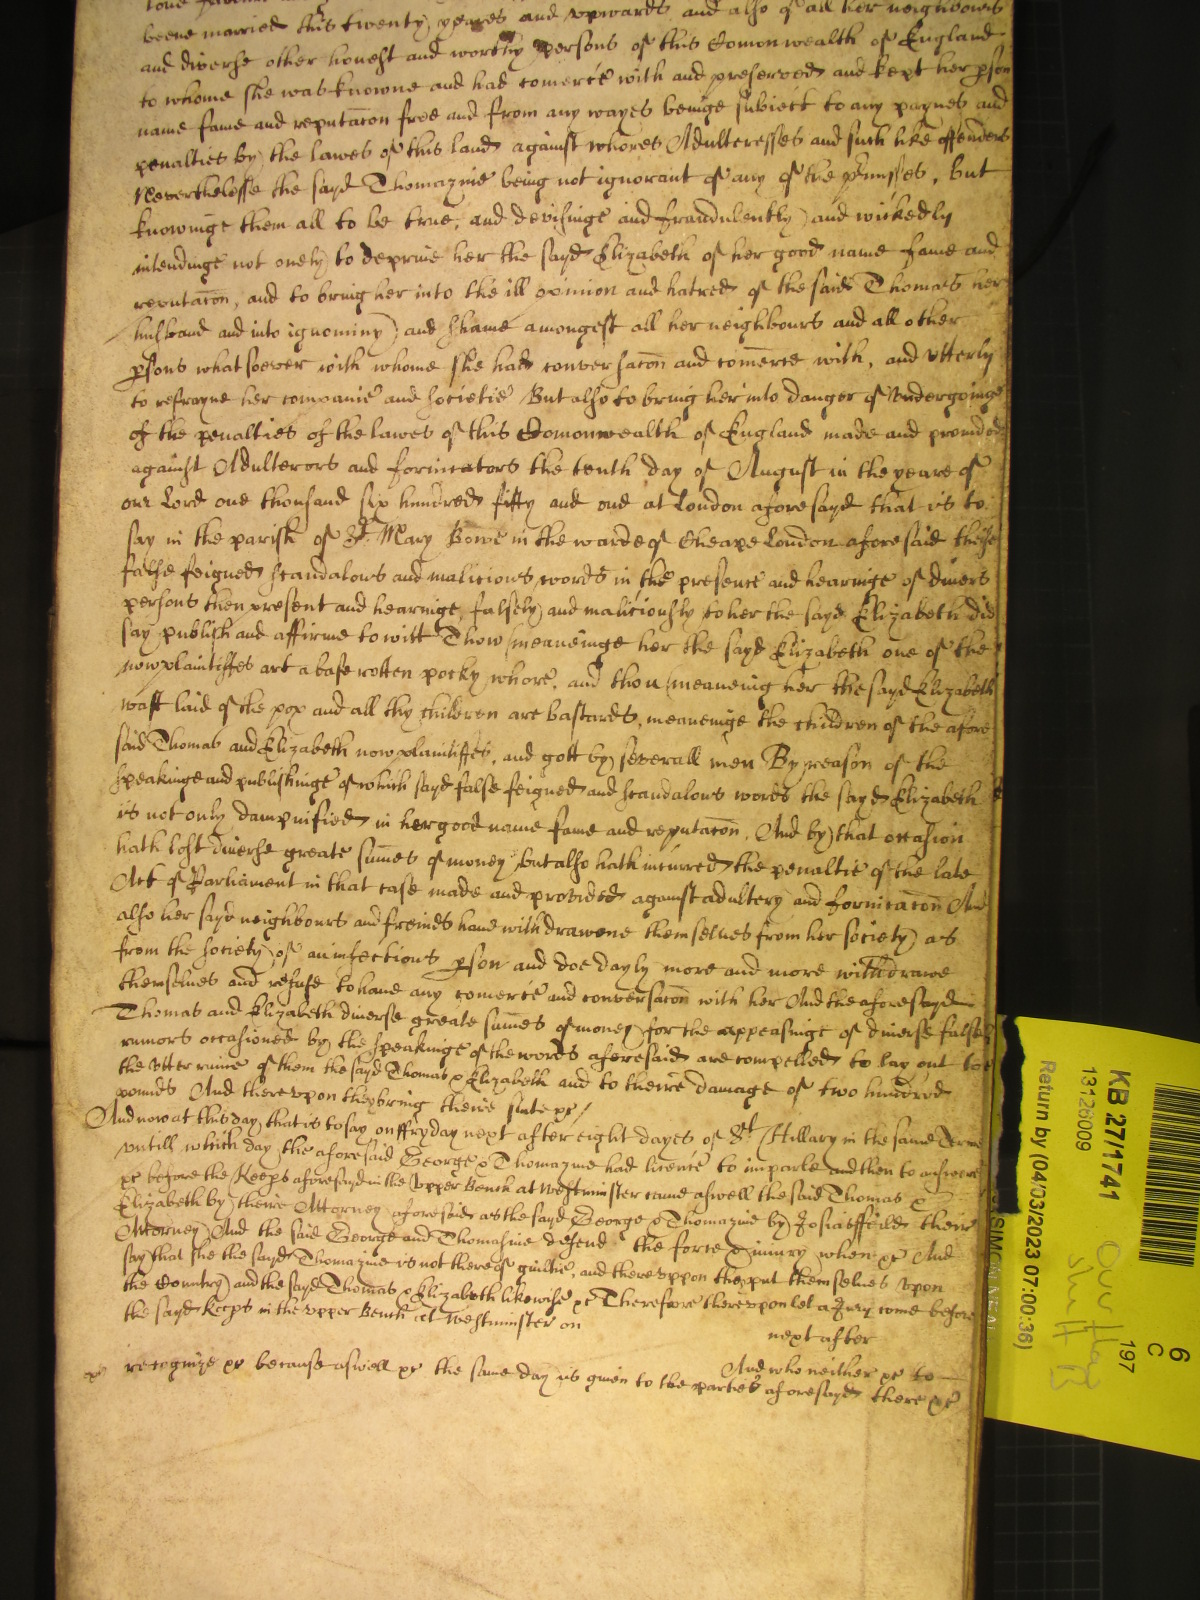 beene married this twenty yeares and upwards and also of all her neighbours
and diverse other honest and worthy persons of this Comonwealth of England
to whome she was knowne and had comerce with and preserved and kept her pson
name fame and reputacon free and from any wayes beinge subiect to any paynes and
penalties by the lawes of this land against whores Adulteresses and such like offenders
Neverthelesse the sayd Thomazine being not ignorant of any of the pmisses, but
knowinge them all to be true, and devisinge and fraudulently and wickedly
intendinge not onely to deprive her the sayd Elizabeth of her good name fame and
reputacon, and to bring her into the ill opinion and hatred of the said Thomas her
husband and into ignominy and shame amongest all her neighbours and all other
psons whatsoever with whome she had conversacon and comerce with, and utterly
to refrayne her companie and societie But also to bring her into danger of undergoinge
of the penalties of the lawes of this Comonwealth of England made and provided
against Adulterors and fornicators the tenth day of August in the yeare of
our Lord one thousand six hundred fifty and one at London aforesayd that is to
say in the parish of St. Mary Bowe in the warde of Cheape London aforesaid theise
false feigned scandalous and malicious words in the presence and hearinge of divers
persons then present and hearinge, falsely and maliciously to her the sayd Elizabeth did
say publish and affirme to witt Thow (meaneinge her the sayd Elizabeth one of the
now plaintiffes art a base rotten pocky whore, and thou (meaneing her the sayd Elizabeth
wast laid of the pox and all thy children are bastards, meaneinge the children of the afore
said Thomas and Elizabeth now plaintiffes, and gott by severall men By reason of the
speakinge and publishinge of which sayd false feigned and scandalous words the sayd Elizabeth
is not only dampnified in her good name fame and reputacon, And by that occasion
hath lost diverse greate sumes of money but also hath incurred the penaltie of the late
Act of Parliament in that case made and provided against adultery and fornicacon And
also her sayd neighbours and freinds have withdrawene themselves from her society as
from the society of an infectious pson and doe dayly more and more withdrawe
themselves and refuse to have any comerce and conversacon with her And the aforesayd
Thomas and Elizabeth diverse greate sumes of money for the appeasinge of diverse false
rumors occasioned by the speakinge of the words aforesaid are compelled to lay out to
the utter ruine of them the sayd Thomas & Elizabeth and to theire damage of two hundred
pounds And thereupon they bring theire suite &c /
And now at this day that is to say on ffryday next after eight dayes of St. Hillary in the same Terme
untill which day the aforesaid George & Thomazine had licence to imparle and then to answere
&c before the Keeps aforesayd in the Upper Bench at Westminster came aswell the said Thomas &
Elizabeth by theire Attorney aforesaid as the sayd George & Thomazine by Josias ffeild their
Attorney And the said George and Thomasine defend the force & iniury when &c And
say that she the sayd Thomazine is not thereof guiltie, and thereuppon they put themselves upon
the Country and the sayd Thomas & Elizabeth likewise &c Therefore thereupon let a Jury come before
the sayd Keeps in the Upper Bench at Westminster on
next after
And who neither &c to
&c recognize &c because aswell &c the same day is given to the parties aforesayd there &c
KB 27/1741
13126009
Return by (04/03/2023 07:00:36)
6
C
197